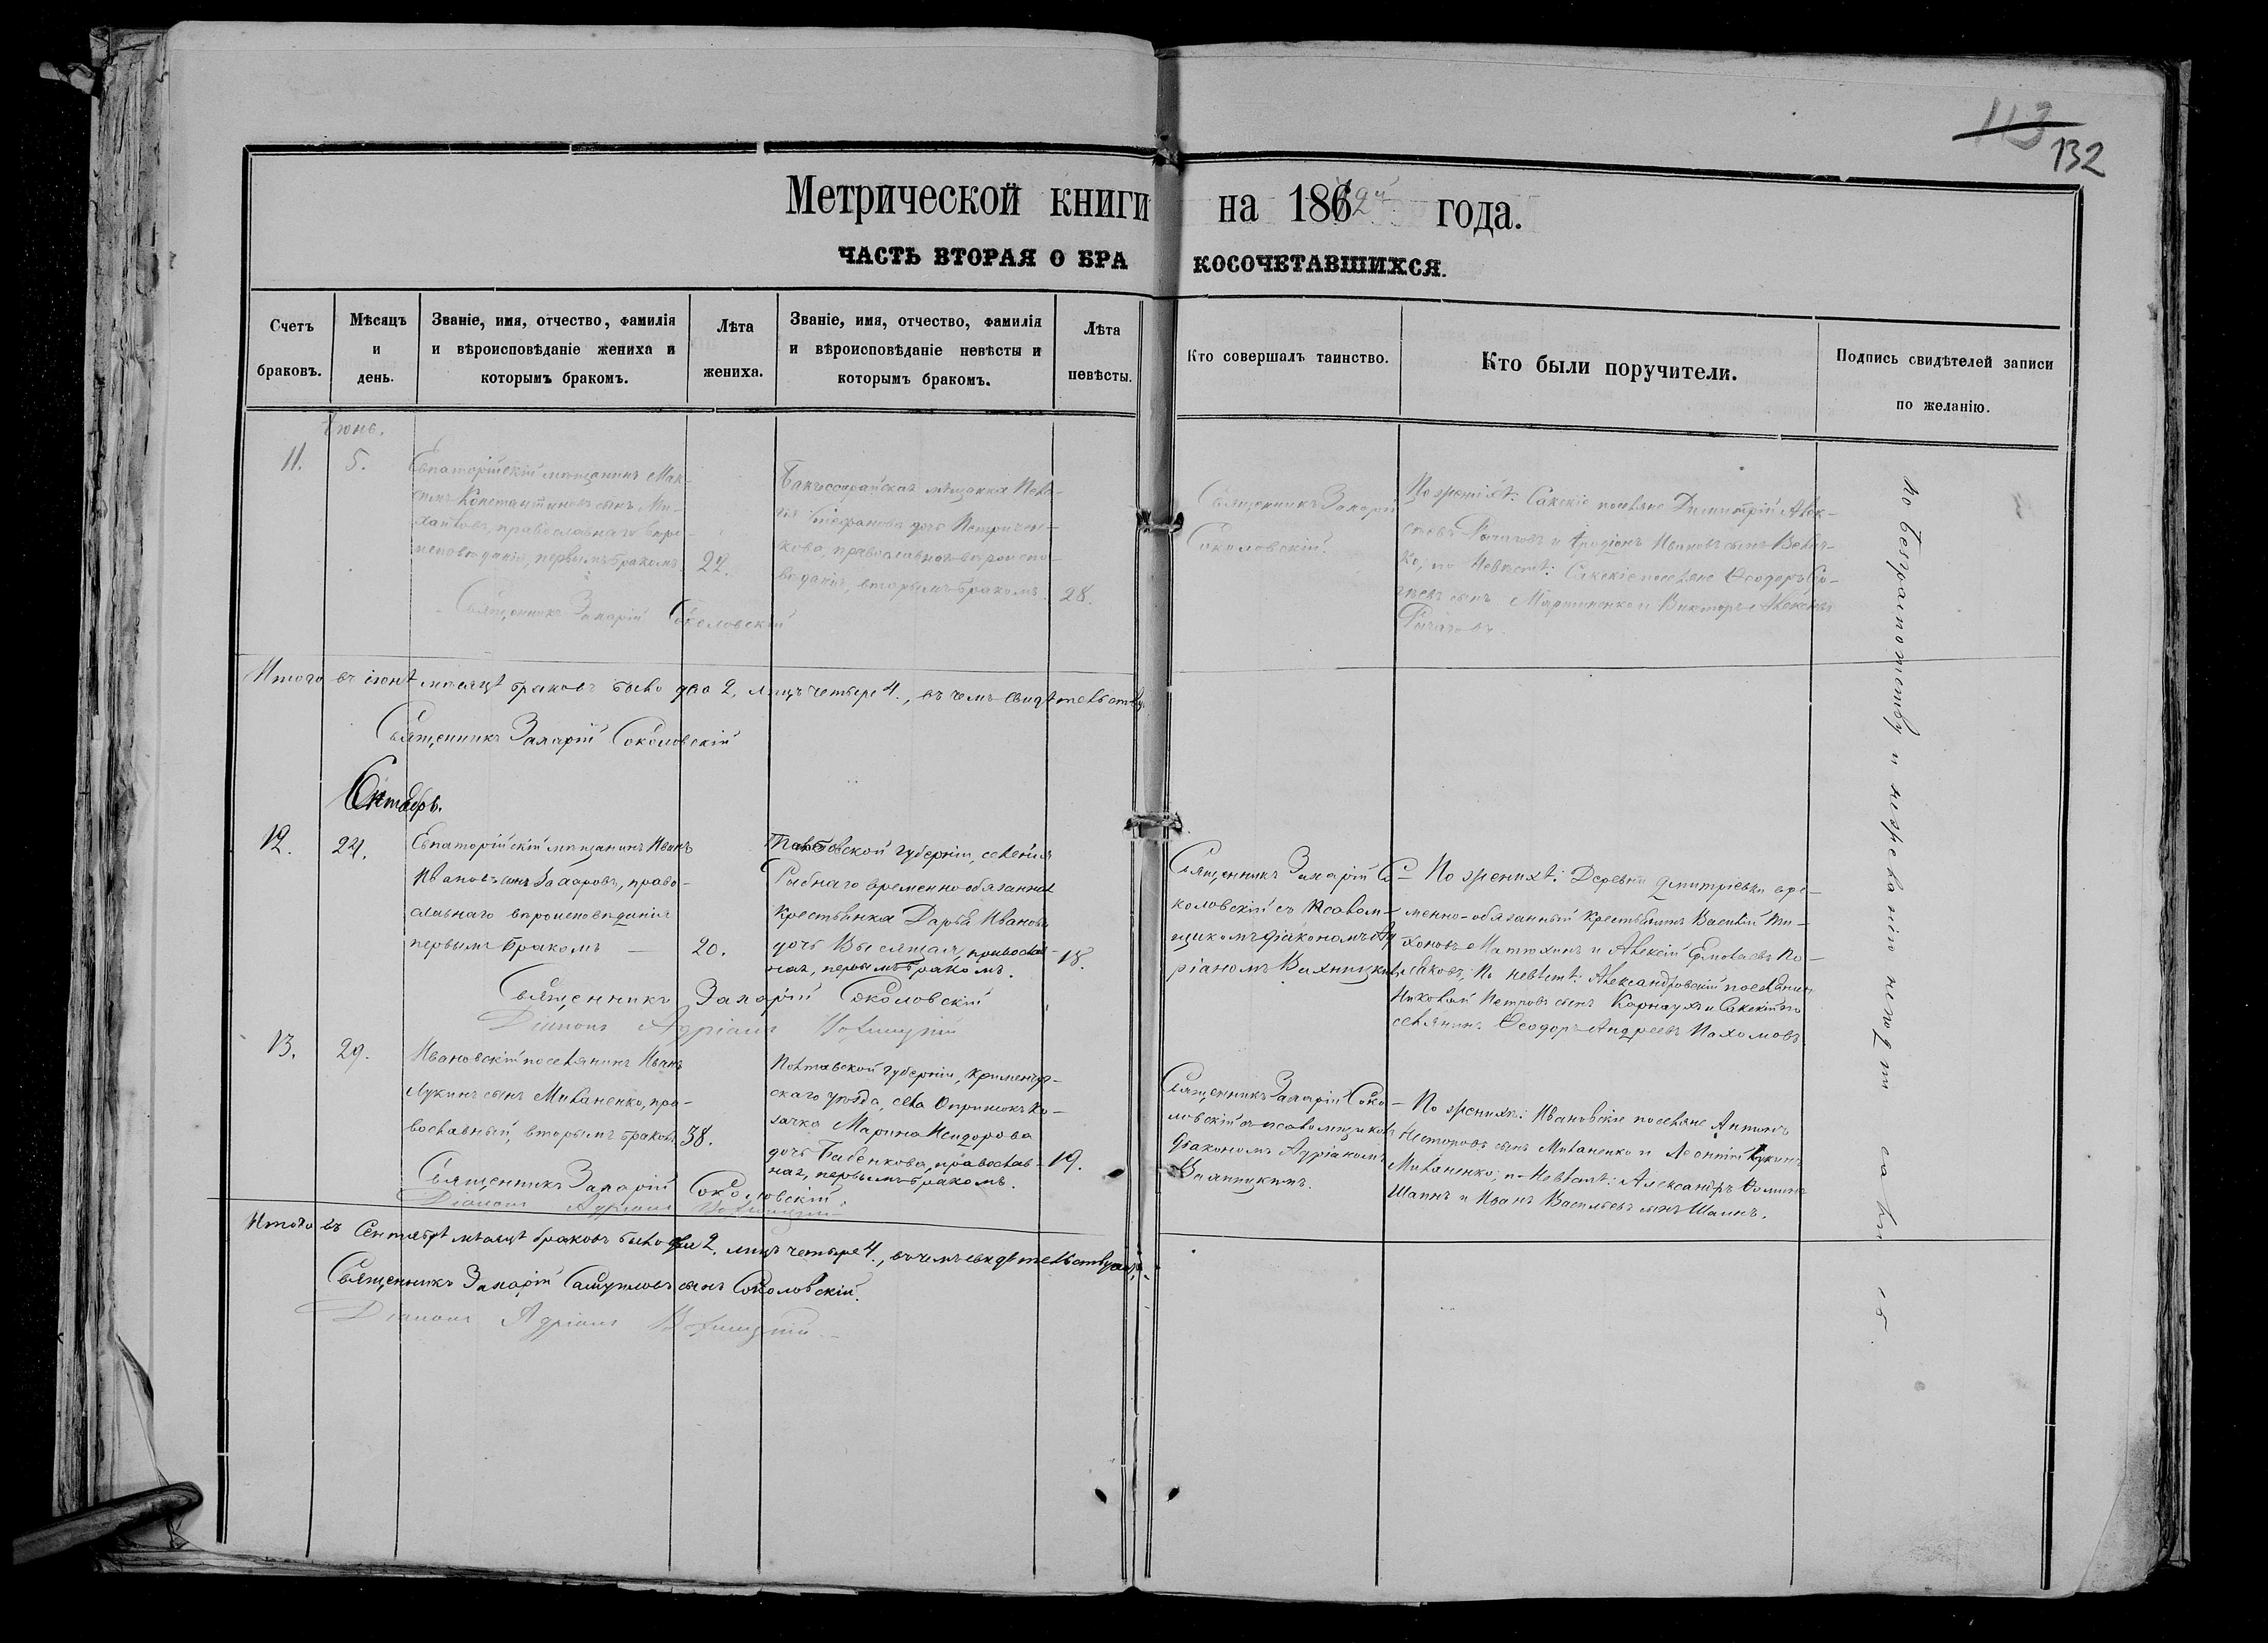 113
132
Метрической книги на 1862й года.
ЧАСТЬ ВТОРАЯ О БРАКОСОЧЕТАВШИХСЯ.
Счетъ браковъ.
Мѣсяцъ и день.
Званіе, имя, отчество, фамилія и вѣроисповѣданіе жениха и которымъ бракомъ.
Лѣта жениха.
Званіе, имя, отчество, фамилія и вѣроисповѣданіе невѣсты и которымъ бракомъ.
Лѣта невѣсты.
Кто совершалъ таинство.
Кто были поручители.
Подпись свидѣтелей записи по желанію.
Іюнь.
11.
5.
Евпаторійскій мѣщанинъ Мак-
симъ Константиновъ сынъ Ми-
хайловъ, православнаго вѣро-
исповѣданія, первымъ бракомъ
22.
Бахчисарайская мѣщанка Пела-
гія Стефанова дочь Петричен-
кова, православнаго вѣроиспо-
вѣданія, вторымъ бракомъ.
28.
Священникъ Захарій
Соколовскій.
По женихѣ: Сакскіе поселяне Димитрій Алек-
сѣевъ и Иродіонъ Ивановъ сынъ Велич-
ко, по невѣстѣ: Сакскіе поселяне Ѳеодоръ
сынъ Мартиненко и Викторъ Алексѣевъ
Священникъ Захарій Соколовскій
Итого въ іюнѣ мѣсяцѣ браковъ было два 2, лицъ четыре 4., въ чемъ свидѣтельству
Священникъ Захарій Соколовскій
Сентябрь.
12.
24.
Евпаторійскій мѣщанинъ Иванъ
Ивановъ сынъ Захаровъ, право-
славнаго вѣроисповѣданія
первымъ бракомъ —
20.
губерніи, селенія
Рыбнаго временно-обязанная
крестьянка Дарья Иванова
дочь православ-
ная, первымъ бракомъ.
18.
Священникъ Захарій Со-
коловскій съ псалом-
щикомъ діакономъ Ад-
ріаномъ
По женихѣ: Деревни Дмитріевки вре-
менно-обязанный крестьянинъ Василій Ти-
хоновъ Матюхинъ и Алексѣй Ермолаевъ По-
ляковъ; по невѣстѣ: Александровскій поселянинъ
Николай Петровъ сынъ Карнаухъ и Сакскій по-
селянинъ Ѳеодоръ Андреевъ Пахомовъ.
Священникъ Захарій Соколовскій
Діаконъ Адріанъ
13.
29.
Ивановскій поселянинъ Иванъ
Лукинъ сынъ Миланенко, пра-
вославный, вторымъ бракомъ
38.
Полтавской губерніи, Кременчуг-
скаго уѣзда, села Опришокъ ко-
зачка Марина Исидорова
дочь Бабенкова, православ-
ная, первымъ бракомъ.
19.
Священникъ Захарій Соко-
ловскій съ псаломщикомъ
діакономъ Адріаномъ
По женихѣ: Ивановскіе поселяне Антонъ
Несторовъ сынъ Миланенко и Леонтій Лукинъ
Миланенко; по невѣстѣ: Александръ Ѳоминъ
Шаинъ и Иванъ Васильевъ сынъ Шаинъ.
Священникъ Захарій Соколовскій.
Діаконъ Адріанъ
Итого въ Сентябрѣ мѣсяцѣ браковъ было два 2, лицъ четыре 4., въ чемъ свидѣтельствуемъ:
Священникъ Захарій сынъ Соколовскій.
Діаконъ Адріанъ
По безграмотству и нежеланію